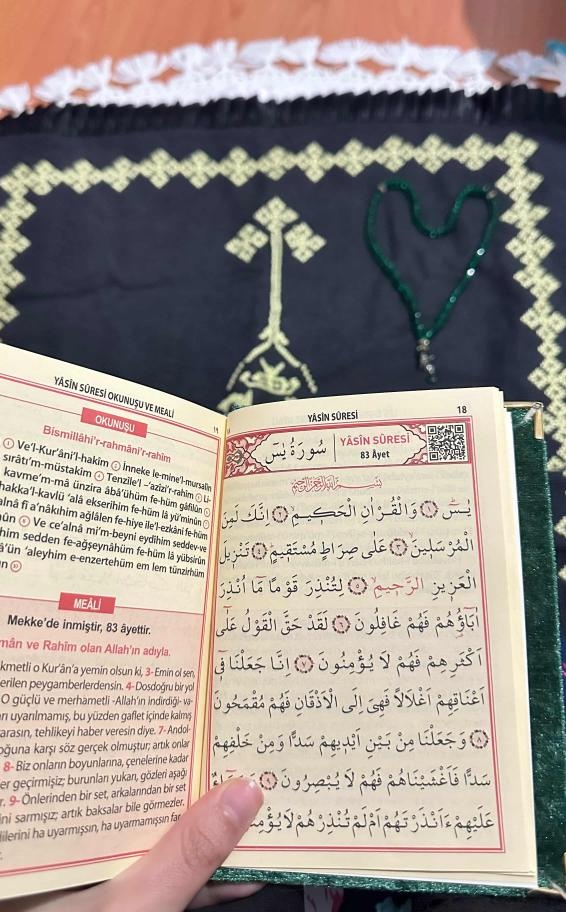 YÂSÎN SÛRESİ OKUNUŞU VE MEALİ
OKUNUŞU
Bismillâhi'r-rahmâni'r-rahîm
① Ve'l-Kur'âni'l-hakîm ② İnneke le-mine'l-mursalîn
sırâtı'm-müstakîm ④ Tenzîle'l-'azîzi'r-rahîm ⑤ Li-
kavme'm-mâ ünzira âbâ'ühüm fe-hüm gâfilûn ⑥
hakka'l-kavlü 'alâ ekserihim fe-hüm lâ yü'minûn ⑦
alnâ fî a'nâkıhim ağlâlen fe-hiye ile'l-ezkâni fe-hüm
ûn ⑧ Ve ce'alnâ mi'm-beyni eydîhim seddev-ve
him sedden fe-ağşeynâhüm fe-hüm lâ yübsirûn
â'ün 'aleyhim e-enzertehüm em lem tünzirhüm
n ⑩
MEÂLİ
Mekke'de inmiştir, 83 âyettir.
mân ve Rahîm olan Allah'ın adıyla.
kmetli o Kur'ân'a yemin olsun ki, 3- Emin ol sen,
erilen peygamberlerdensin. 4- Dosdoğru bir yol
O güçlü ve merhametli -Allah'ın indirdiği- va-
rı uyarılmamış, bu yüzden gaflet içinde kalmış
arasın, tehlikeyi haber veresin diye. 7- Andol-
oğuna karşı söz gerçek olmuştur; artık onlar
8- Biz onların boyunlarına, çenelerine kadar
er geçirmişiz; burunları yukarı, gözleri aşağı
r. 9- Önlerinden bir set, arkalarından bir set
ini sarmışız; artık baksalar bile görmezler.
lilerini ha uyarmışsın, ha uyarmamışsın far
YÂSÎN SÛRESİ 18
سُورَةُ يٰسٓ
YÂSÎN SÛRESİ
83 Âyet
بِسْمِ اللّٰهِ الرَّحْمٰنِ الرَّحِيمِ
يٰسٓ ۝١ وَالْقُرْاٰنِ الْحَكِيمِ ۝٢ اِنَّكَ لَمِنَ
الْمُرْسَلِينَ ۝٣ عَلٰى صِرَاطٍ مُسْتَقِيمٍ ۝٤ تَنْزِيلَ
الْعَزِيزِ الرَّحِيمِ ۝٥ لِتُنْذِرَ قَوْمًا مَٓا اُنْذِرَ
اٰبَٓاؤُ۬هُمْ فَهُمْ غَافِلُونَ ۝٦ لَقَدْ حَقَّ الْقَوْلُ عَلٰٓى
اَكْثَرِهِمْ فَهُمْ لَا يُؤْمِنُونَ ۝٧ اِنَّا جَعَلْنَا فِٓى
اَعْنَاقِهِمْ اَغْلَالًا فَهِىَ اِلَى الْاَذْقَانِ فَهُمْ مُقْمَحُونَ
۝٨ وَجَعَلْنَا مِنْ بَيْنِ اَيْدِيهِمْ سَدًّا وَمِنْ خَلْفِهِمْ
سَدًّا فَاَغْشَيْنَاهُمْ فَهُمْ لَا يُبْصِرُونَ ۝٩
عَلَيْهِمْ ءَاَنْذَرْتَهُمْ اَمْ لَمْ تُنْذِرْهُمْ لَا يُؤْمِنُ